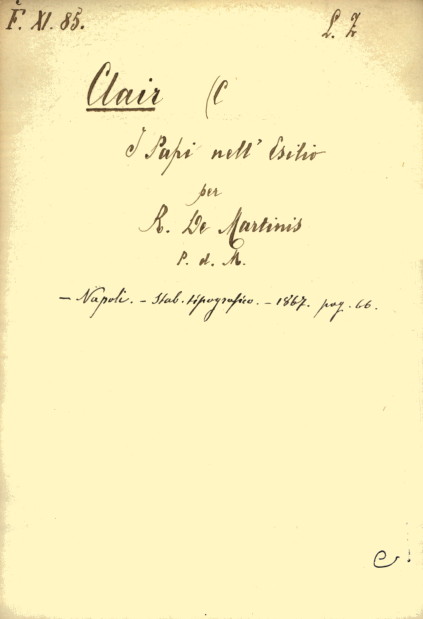 F. XI. 85.
L. Z
Clair (C
I Papi nell' Esilio
per
R. De Martinis
P. d. M.
– Napoli. – Stab. tipografico. – 1867. pag. 66.
e